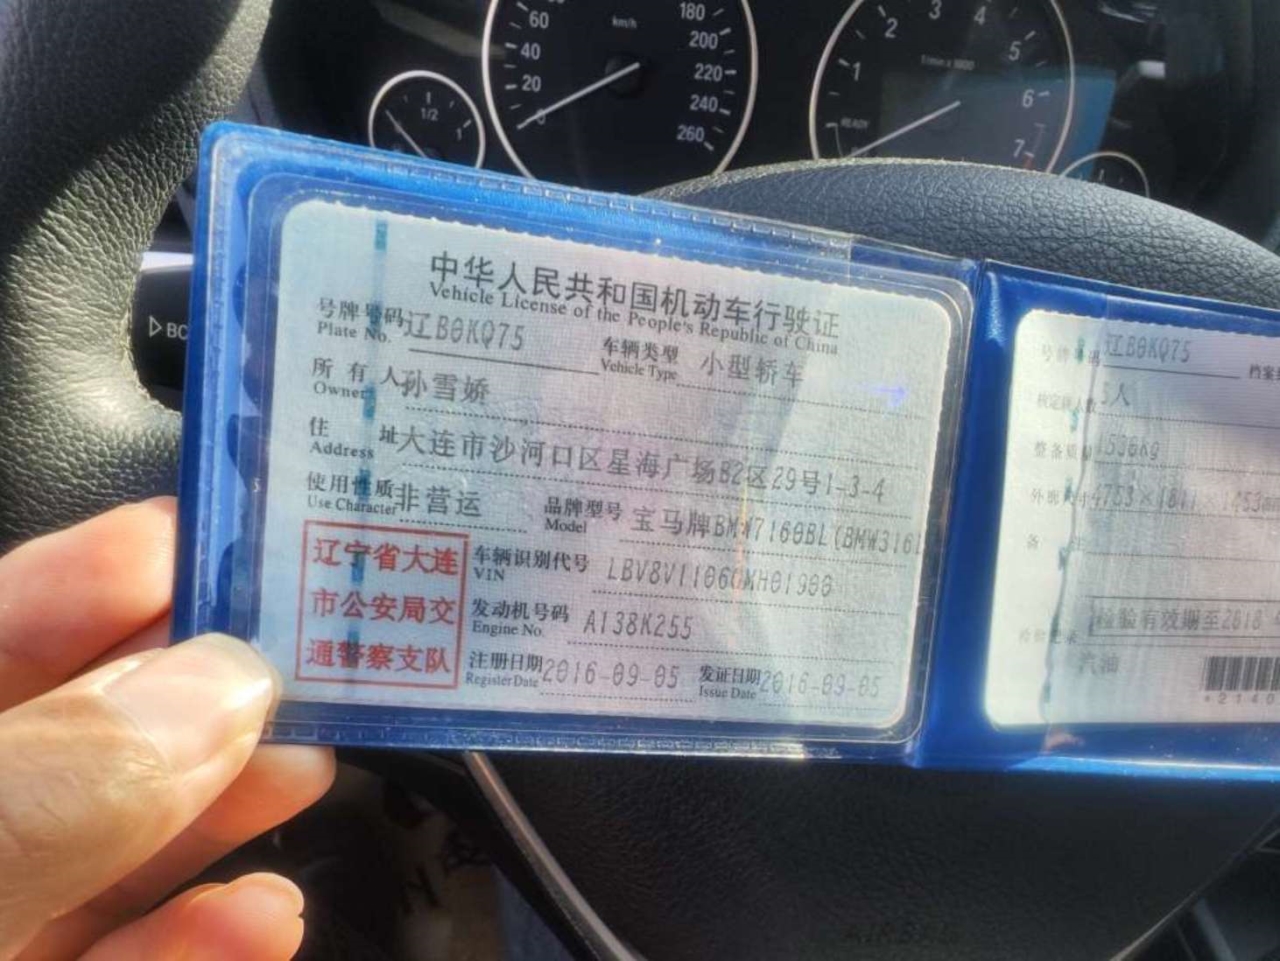 60
40
20
0
km/h
180
200
220
240
260
1/2
1
1
2
3
4
5
6
7
1/min x 1000
READY
BC
中华人民共和国机动车行驶证
Vehicle License of the People's Republic of China
号牌号码 辽B0KQ75
Plate No.
车辆类型 小型轿车
Vehicle Type
所有人 孙雪娇
Owner
住址 大连市沙河口区星海广场B2区29号1-3-4
Address
使用性质 非营运
Use Character
品牌型号 宝马牌BMW7160BL(BMW316i
Model
辽宁省大连
市公安局交
通警察支队
车辆识别代号
VIN
发动机号码 A138K255
Engine No.
注册日期 2016-09-05
Register Date
发证日期 2016-09-05
Issue Date
辽B0KQ75
5人
整备质量
检验有效期至2018
汽油
AIRBAG